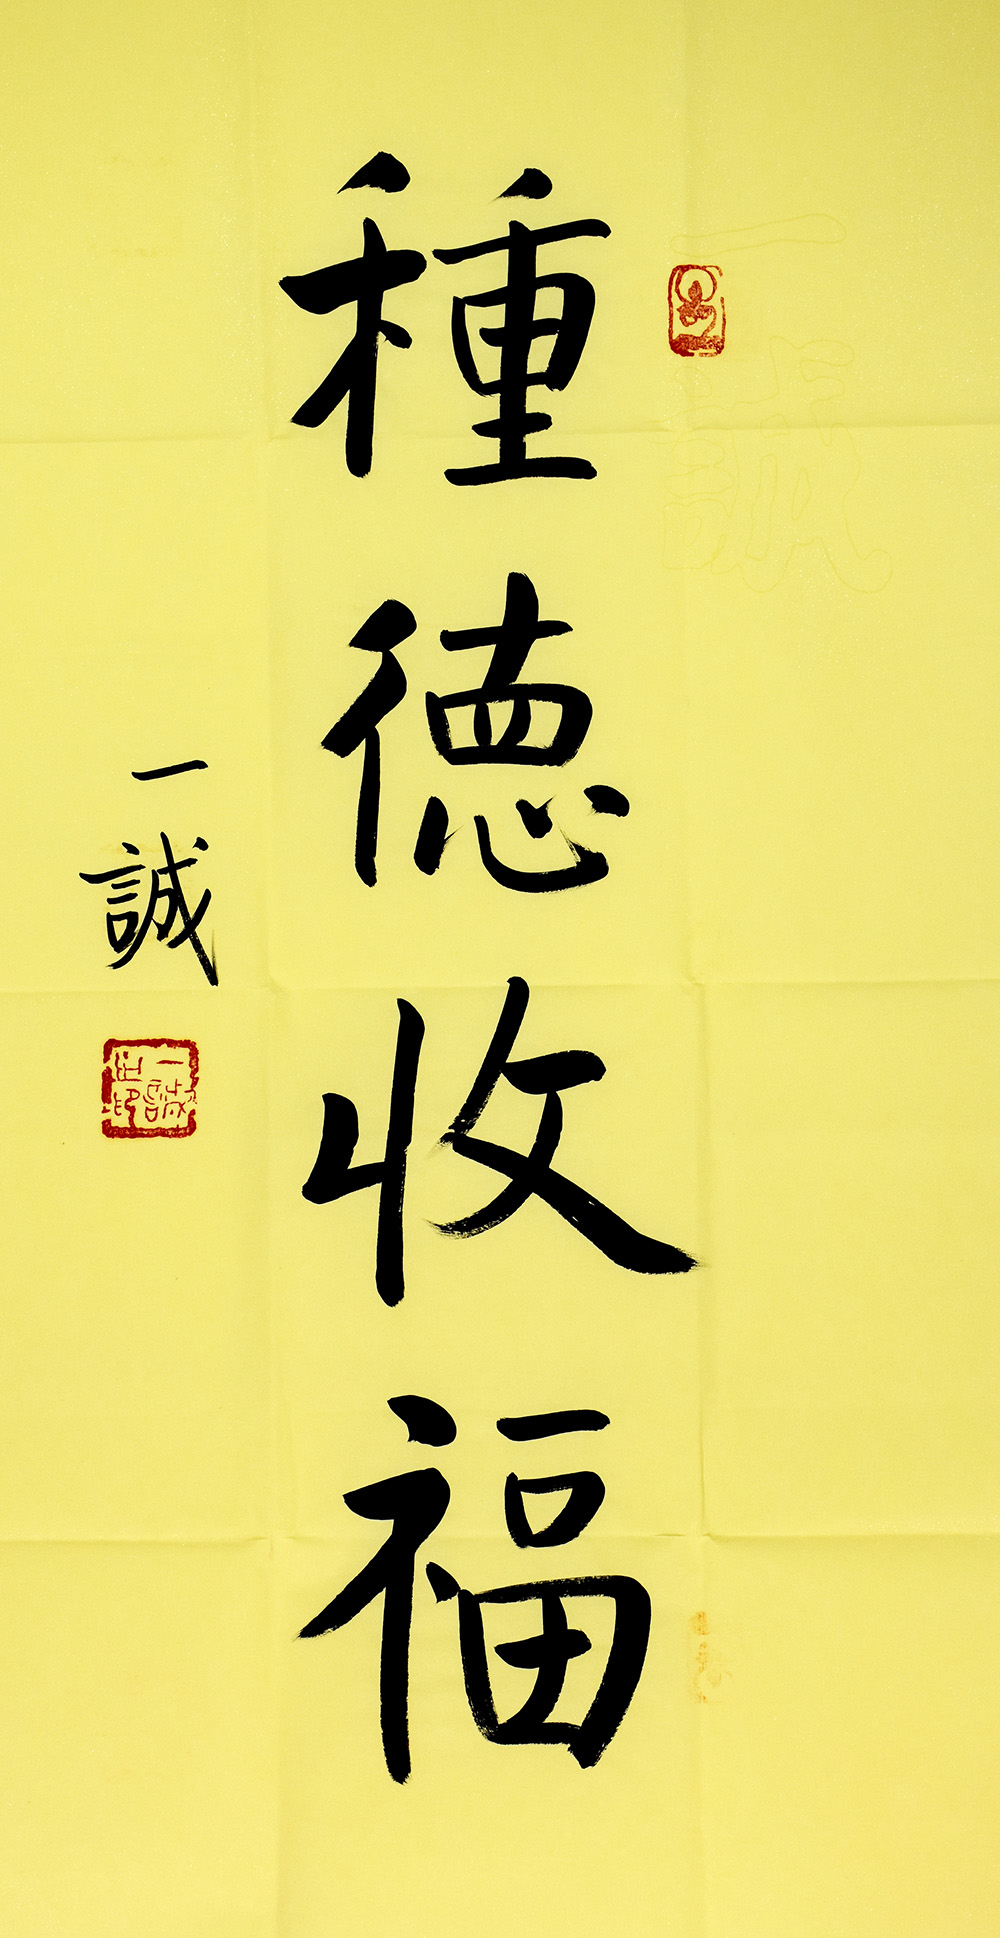 種德收福
一誠
一誠之印